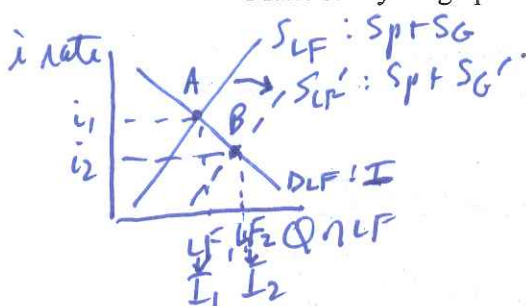 i rate
S_LF : Sp + SG
S_LF' : Sp + SG'
A
i1
B
i2
DLF : I
LF1 LF2 Q of LF
I1 I2